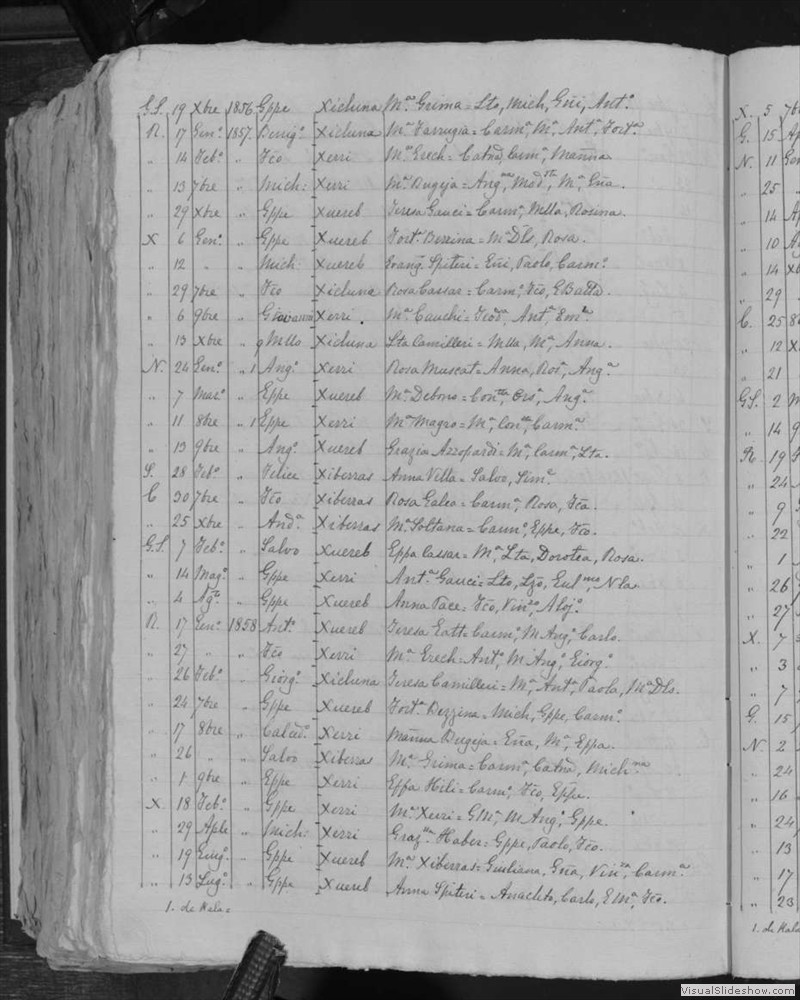 G.S. 19 Xbre 1856 Gppe Xicluna Mª Grima = Lto, Mich, Gñi, Antº
R. 17 Genº 1857 Xicluna Mª Farrugia = Carmª, Mª, Antª, Fortª
" 14 Febº " Fco Xerri Mª Grech = Catnª, Carmª, Mañna
" 13 7bre " Mich: Xerri Mª Bugeja = Angªª, Madnª, Mª, Gña.
" 29 Xbre " Gppe Xuereb Teresa Gauci = Carmª, Mlla, Rosina.
X 6 Genº " Gppe Xuereb Fortª Bezzina = Mª Dls, Rosa.
" 12 " " Mich Xuereb Evangª Spiteri = Gñi, Paolo, Carmº
" 29 7bre " Fco Xicluna Rosa Cassar = Carmº, Fco, GBatta.
" 6 9bre " Giovanni Xerri. Mª Cauchi = Teodª, Antª
" 13 Xbre " 9 Mllo Xicluna Lta Camilleri = Mlla, Mª, Anna.
N. 24 Genº " 1 Angº Xerri Rosa Muscat = Anna, Rosª, Angª
" 7 Marº " Gppe Xuereb Mª Debono = Conttª, Orsª, Angª
" 11 8bre " 1 Gppe Xerri Mª Magro = Mª, Conttª, Carmª
" 13 9bre " Angº Xuereb Grazia Azzopardi = Mª, Carmª, Lta.
S. 28 Febº " Felice Xiberras Anna Vella = Salvo, Simª
C 30 7bre " Fco Xiberras Rosa Galea = Carmª, Rosa, Fca.
" 25 Xbre " Andª Xiberras Mª Soltana = Carmº, Gppe, Fco.
G.S. 7 Febº " Salvo Xuereb Gppa Cassar = Mª, Lta, Dorotea, Rosa.
" 14 Magº " Gppe Xerri Antª Gauci = Lto, Lzo, Nla
" 4 Agto " Gppe Xuereb Anna Pace = Fco, Vinzo, Alojº
R. 17 Genº 1858 Antº Xuereb Teresa Zatt = Carmº, M Angº, Carlo.
" 27 " " Fco Xerri Mª Grech = Antº, M Angº, Giorgº
" 26 Febº " Giorgº Xicluna Teresa Camilleri = Mª, Antª, Paola, Mª Dls.
" 24 7bre " Gppe Xuereb Fortª Bezzina = Mich, Gppe, Carmº
" 17 8bre " Calcedº Xerri Mañna Bugeja = Gña, Mª, Gppa.
" 26 " " Salvo Xiberras Mª Grima = Carmª, Catnª, Michna
" 1 9bre " Gppe Xerri Gppa Hili = Carmº, Fco, Gppe.
X 18 Febº " Gppe Xerri Mª Xerri = GMª, M Angº, Gppe.
" 29 Aple " Mich: Xerri Grazªª Haber = Gppe, Paolo, Fco.
" 19 Giugº " Gppe Xuereb Mª Xiberras = Giuliana, Gña, Vinzª, Carmª
" 13 Lugº " Gppe Xuereb Anna Spiteri = Anacleto, Carlo, GMª, Fco.
1. de Hala =
X. 5 7b
G. 15 Ap
N. 11 Gen
" 25 "
" 14 Ap
" 10
" 14 Xb
" 29
C. 25 8
" 12 X
" 21
G.S. 2 M
" 14 9
R. 19
" 24
" 9
" 22
" 1
" 26
" 27
X. 7
" 3
" 7
G. 15
N. 2
" 24
" 16
" 24
" 13
" 17
" 23
1. de Hala
VisualSlideshow.com